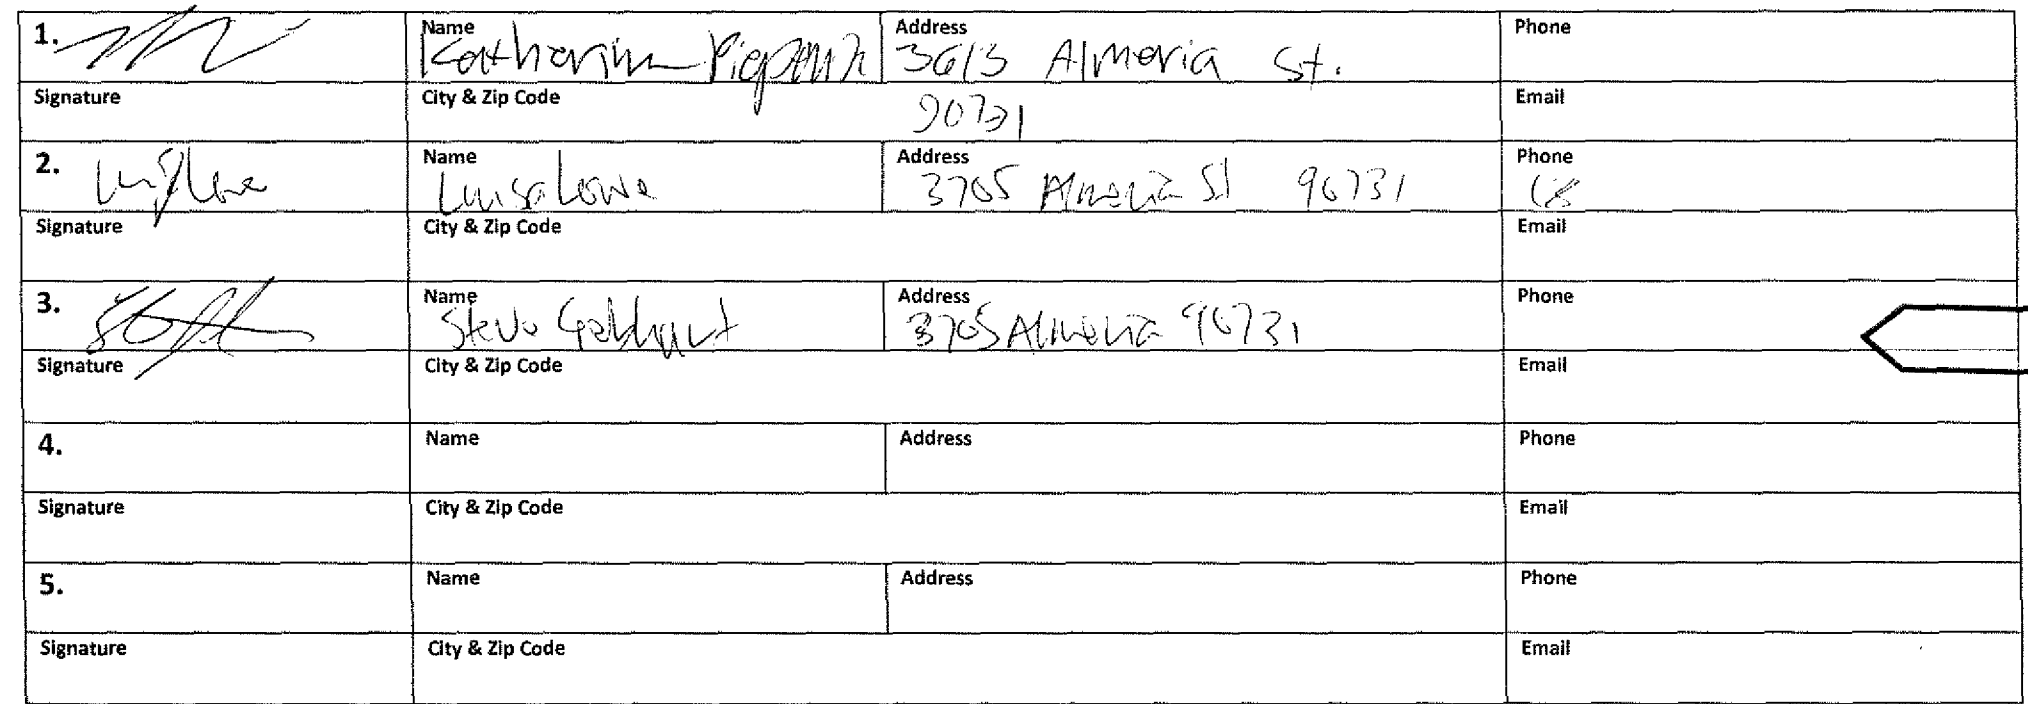 1. Name Katherine Address 3613 Almeria St. Phone
Signature City & Zip Code 90731 Email
2. Name Luisa Lowe Address 3705 Almeria St 90731 Phone
Signature City & Zip Code Email
3. Name Steve Address 3705 Almeria 90731 Phone
Signature City & Zip Code Email
4. Name Address Phone
Signature City & Zip Code Email
5. Name Address Phone
Signature City & Zip Code Email